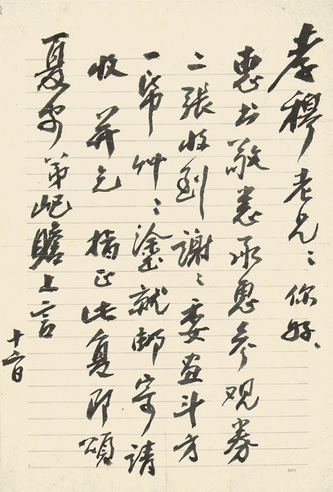 孝穆老兄:你好、
惠书敬悉承惠参观券
二张收到谢:委画斗方
一帋艸:塗就邮寄请
收并乞指正此复即颂
夏安弟屺瞻上言
十六日